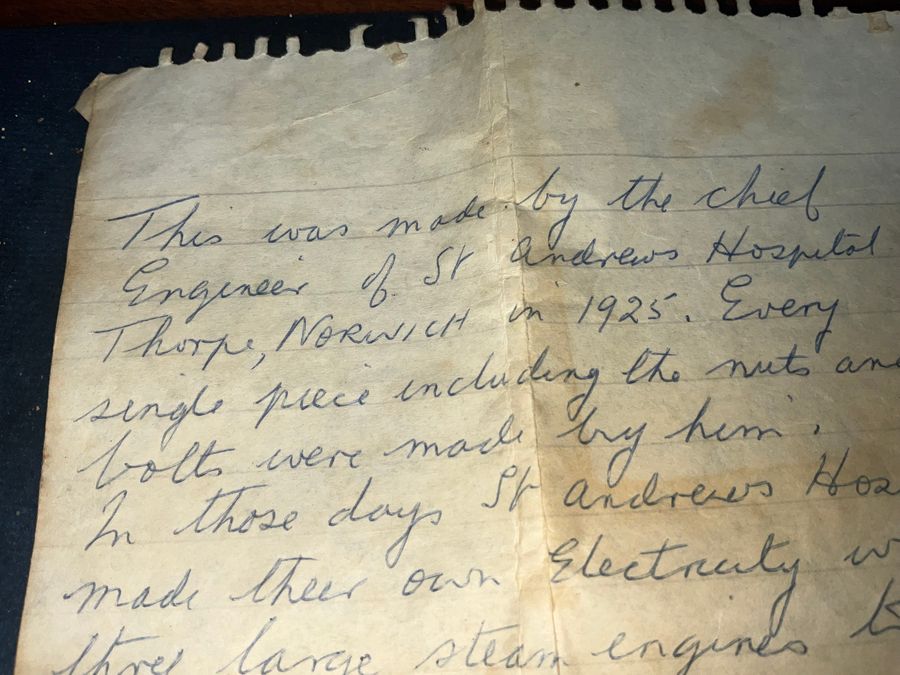 This was made by the chief
Engineer of St Andrews Hospital
Thorpe, NORWICH in 1925. Every
single piece including the nuts and
bolts were made by him.
In those days St Andrews Hos
made their own Electricity w
three large steam engines